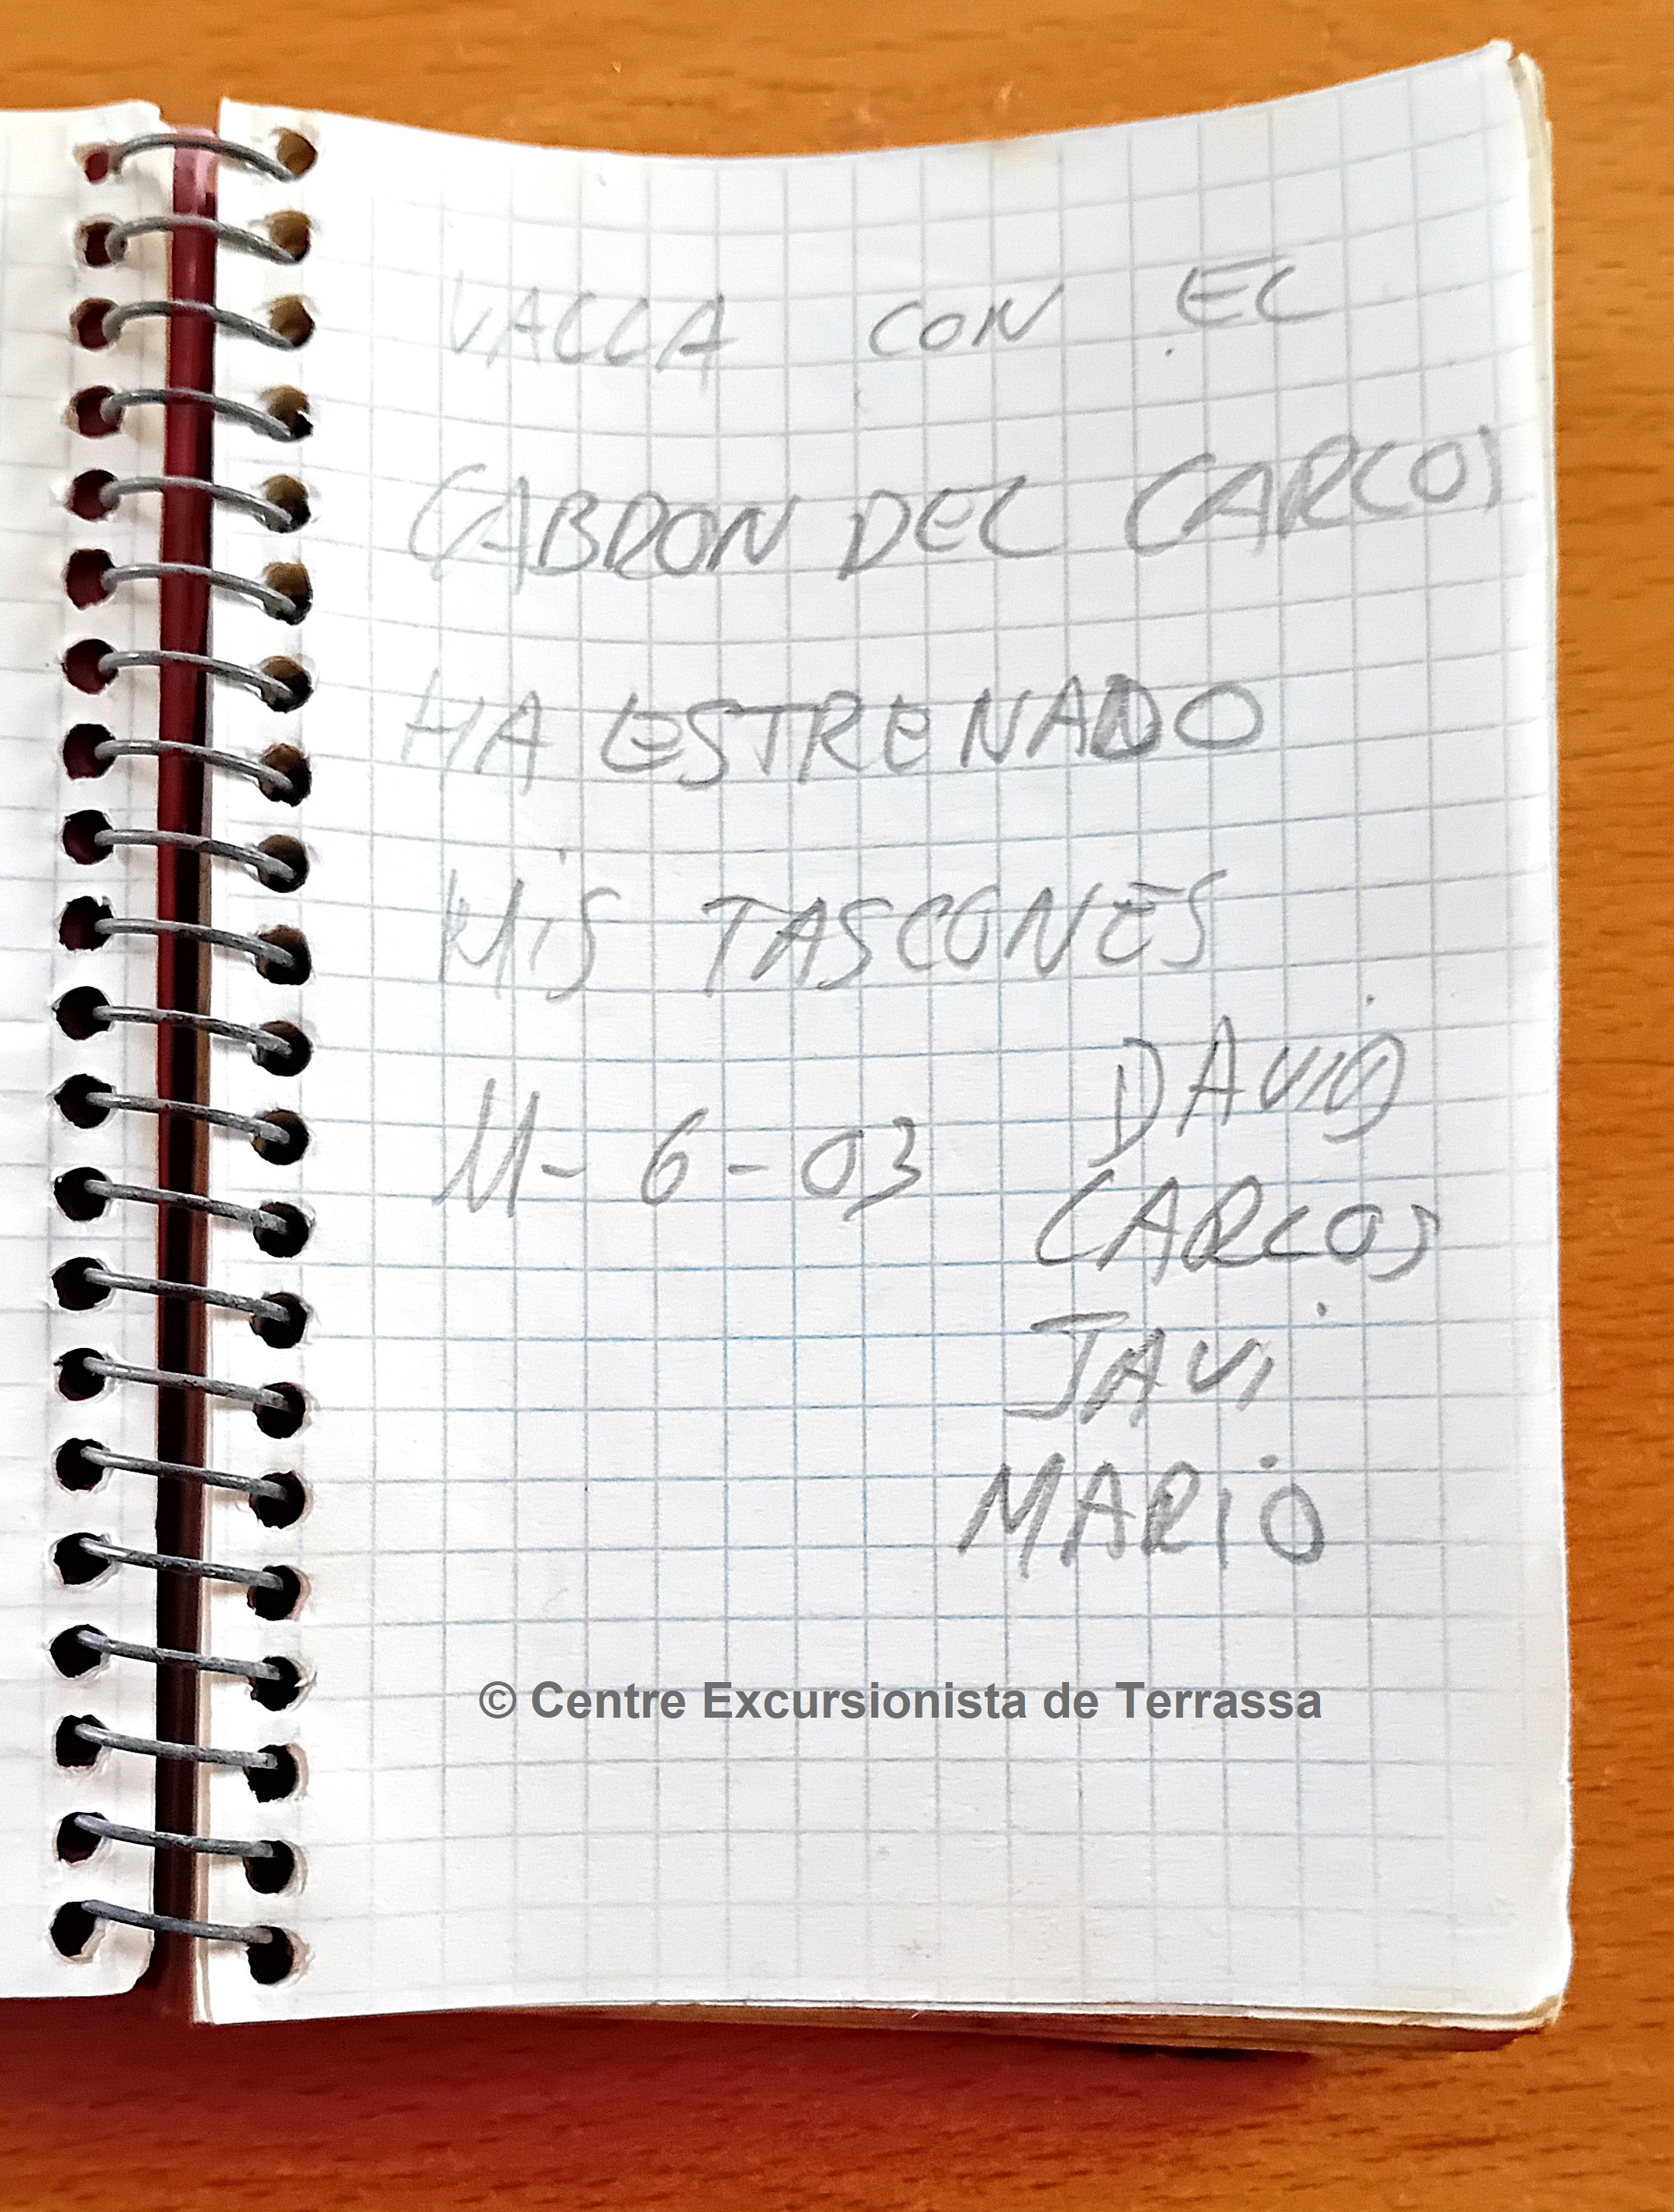 VALLA CON EL
CABRON DEL CARLOS
HA ESTRENADO
MIS TASCONES
11-6-03 DAVID
CARLOS
JAVI
MARIO
© Centre Excursionista de Terrassa